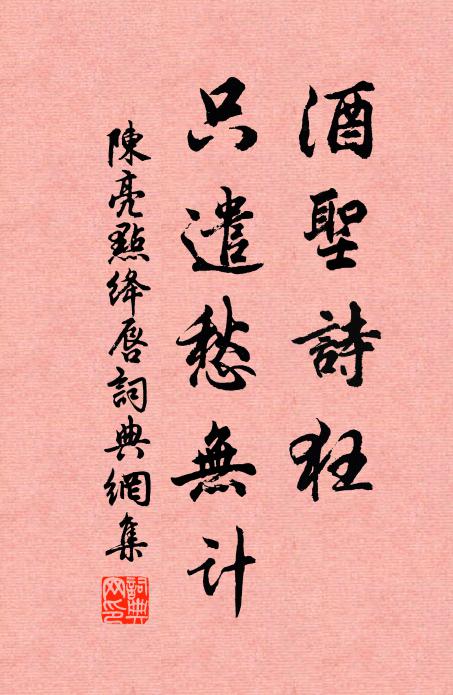 酒聖詩狂
只遣愁無計
陳亮點絳唇詞典網集
詞典網印